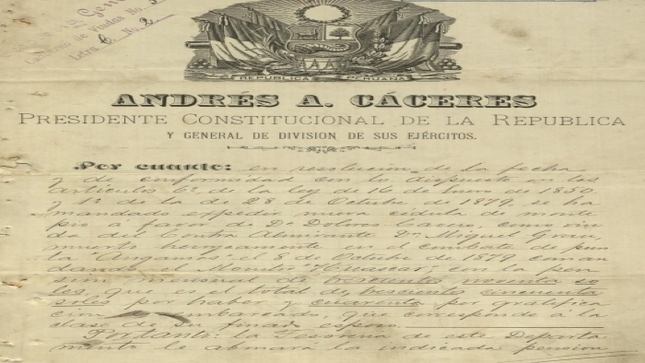 General
de Viudas No. 3
Letra C No. 2
REPUBLICA PERUANA
ANDRÉS A. CÁCERES
PRESIDENTE CONSTITUCIONAL DE LA REPUBLICA
Y GENERAL DE DIVISION DE SUS EJÉRCITOS.
Por cuanto: en resolucion de la fecha
y de conformidad con lo dispuesto en los
artículos 6º de la ley de 16 de Enero de 1850
y 1º de la de 28 de Octubre de 1879, se ha
mandado expedir nueva cédula de monte
pio a favor de Dª Dolores Cavero, como viu
da del Contra Almirante D. Miguel Grau,
muerto heroycamente en el combate de pun
ta "Angamos" el 8 de Octubre de 1879 coman
dando el Monitor "Huascar" con la pen
sion mensual de trescientos noventa so
les que es el total de trescientos cincuenta
soles por haber y cuarenta por gratifica
cion de embarcado, que corresponde á la
clase de su finado esposo.
Por tanto: la Tesorería de este Departa
mento le abonará la indicada pension